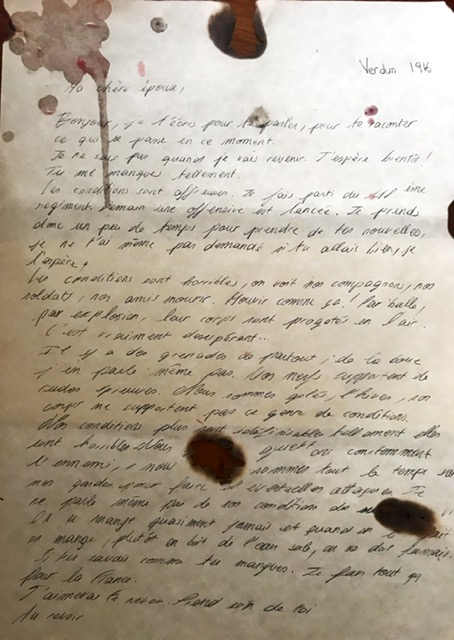 Verdun 1916
Ma chère épouse,
Bonjour, je t'écris pour te parler, pour te raconter
ce qui se passe en ce moment.
Je ne sais pas quand je vais revenir. J'espère bientôt!
Tu me manques tellement.
Les conditions sont affreuses. Je fais parti du ème
régiment. Demain une offensive est lancée. Je prend
donc un peu de temps pour prendre de tes nouvelles,
je ne t'ai même pas demandé si tu allais bien, je
l'espère!
Les conditions sont horribles, on voit nos compagnons, nos
soldats, nos amis mourir. Mourir comme ça! Par balle,
par explosion, leur corps sont projetés en l'air...
C'est vraiment desespérant...
Il y a des grenades de partout, de la boue
j'en parle même pas. Nos nerfs supportent de
rudes épreuves. Nous sommes gelés, l'hiver, nos
corps ne supportent pas ce genre de conditions.
Nos conditions plus sont tellement elles
sont horribles. Nous constamment
l'ennemi, nous sommes tout le temps sur
nos gardes pour faire éventuelles attaques. Je
ne parle même pas de nos conditions de
On ne mange quasiment jamais et quand on
en mange, plutôt on boit de l'eau sale, on ne dort jamais.
Si tu savais comme tu manques. Je fais tout ça
pour la France.
J'aimerais te revoir. Prend soin de toi
Au revoir